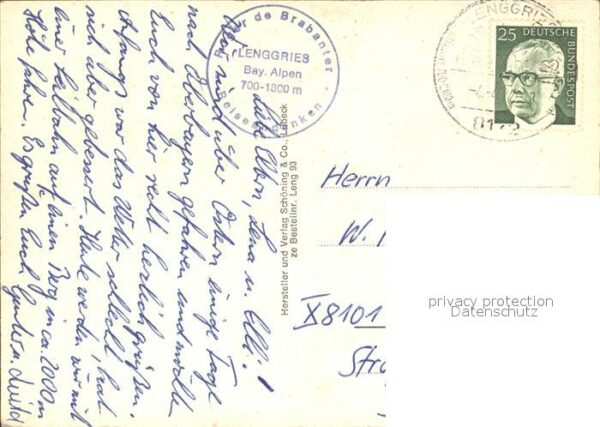 Liebe Eltern, Lena u. Elli!
Wir sind über Ostern einige Tage
nach Oberbayern gefahren und möchten
Euch von hier recht herzlich grüßen.
Anfangs war das Wetter schlecht, hat
sich aber gebessert. Heute werden wir mit
einer Seilbahn auf einen Berg in ca. 2000 m
Höhe fahren. Es grüßen Euch Günter u.
Peter de Brabanter
LENGGRIES
Bay. Alpen
700-1800 m
- Reiseandenken -
Hersteller und Verlag Schöning & Co., Lübeck
ze Bestellnr. Leng 93
LENGGRIES
8172
25 DEUTSCHE
BUNDESPOST
Herrn
W.
X8101
Str
privacy protection
Datenschutz